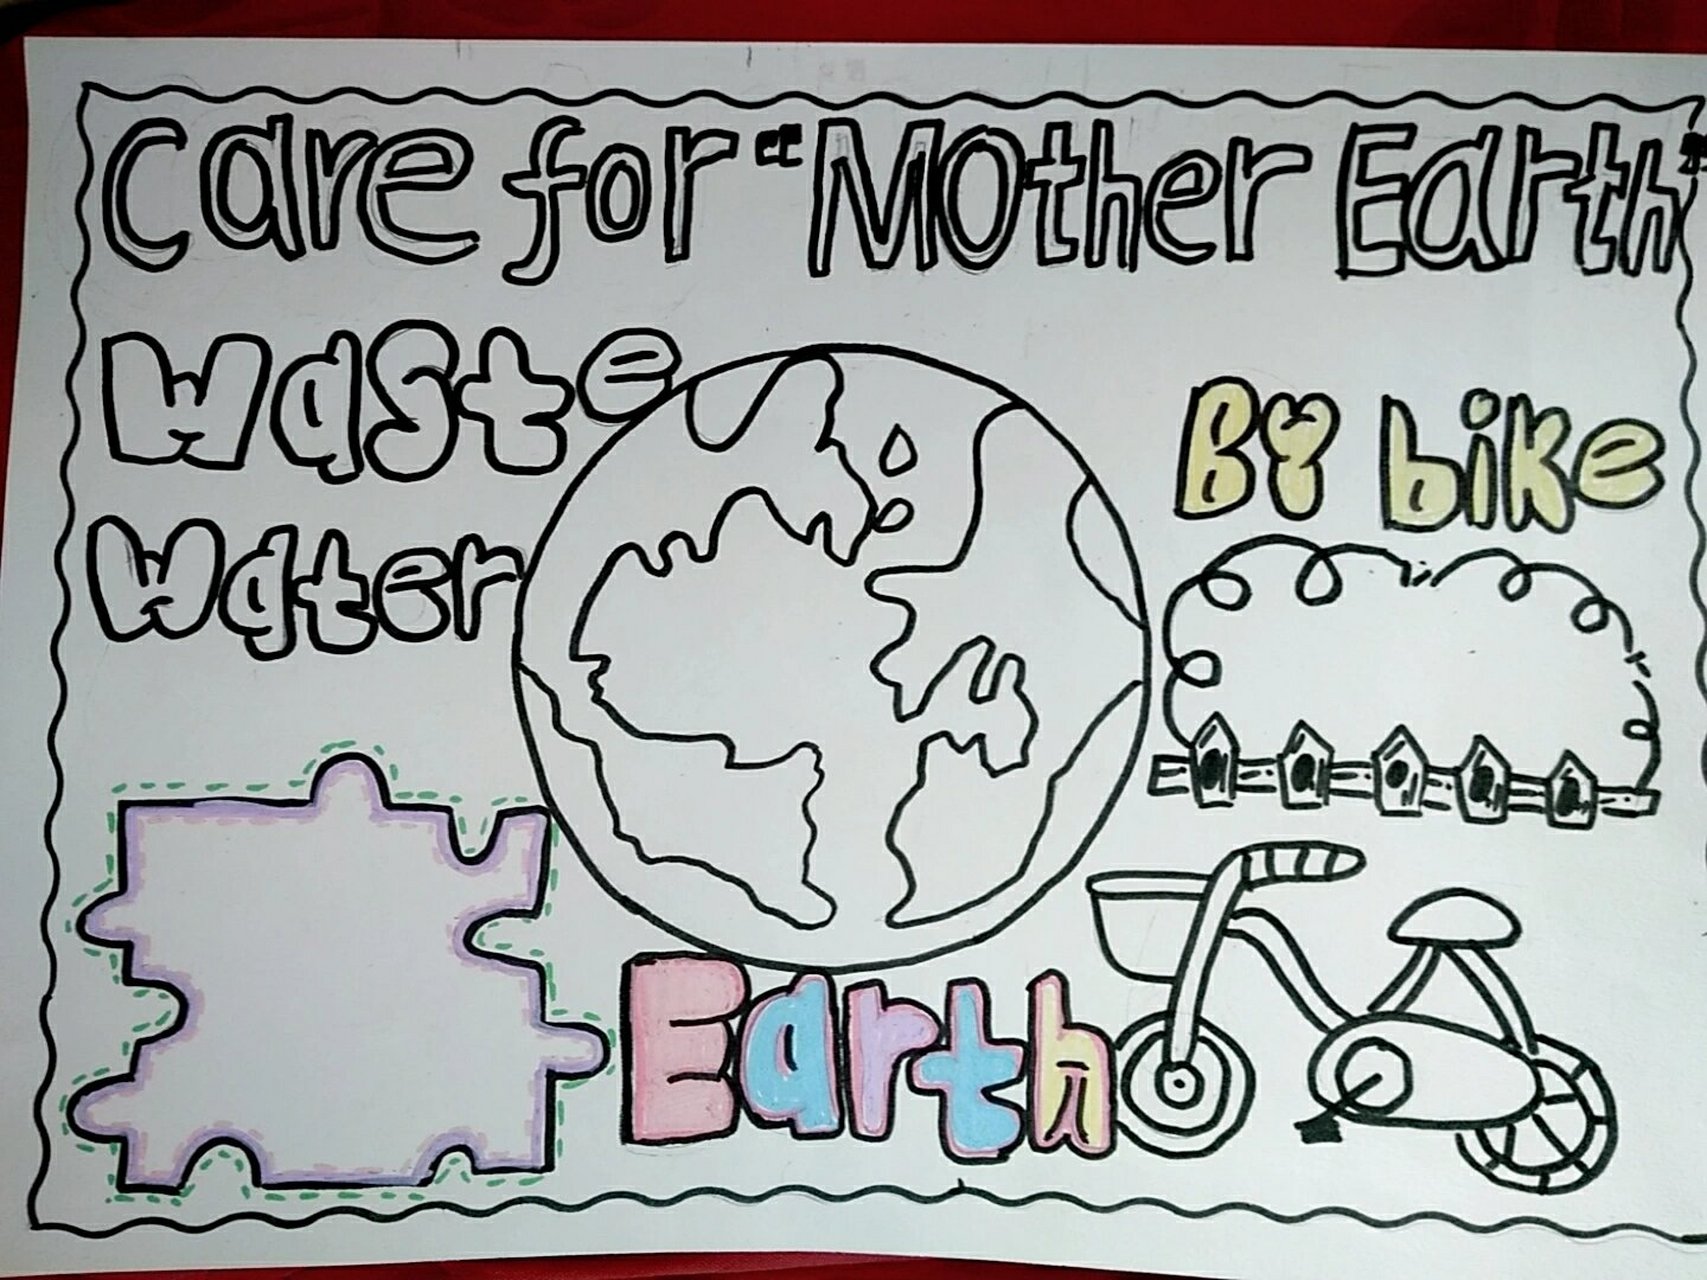 Care for "Mother Earth"
Waste
Water
By bike
Earth